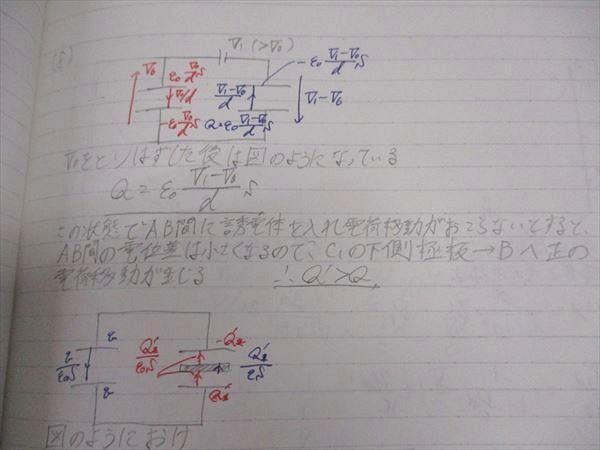 V₁ (>V₀)
V₀
ε₀ V₀/d S
V₀/d
-ε₀ V₀/d S
V₁-V₀/d
-ε₀ V₁-V₀/d S
V₁-V₀
Q=ε₀ V₁-V₀/d S
V₀をとりはずした後は図のようになっている
Q = ε₀ V₁-V₀/d S
この状態でAB間に誘電体を入れ電荷移動がおこらないとすると、
AB間の電位差は小さくなるので、C₁の下側極板→Bへ正の
電荷移動が生じる ∴ Q'>Q
図のようにおけ